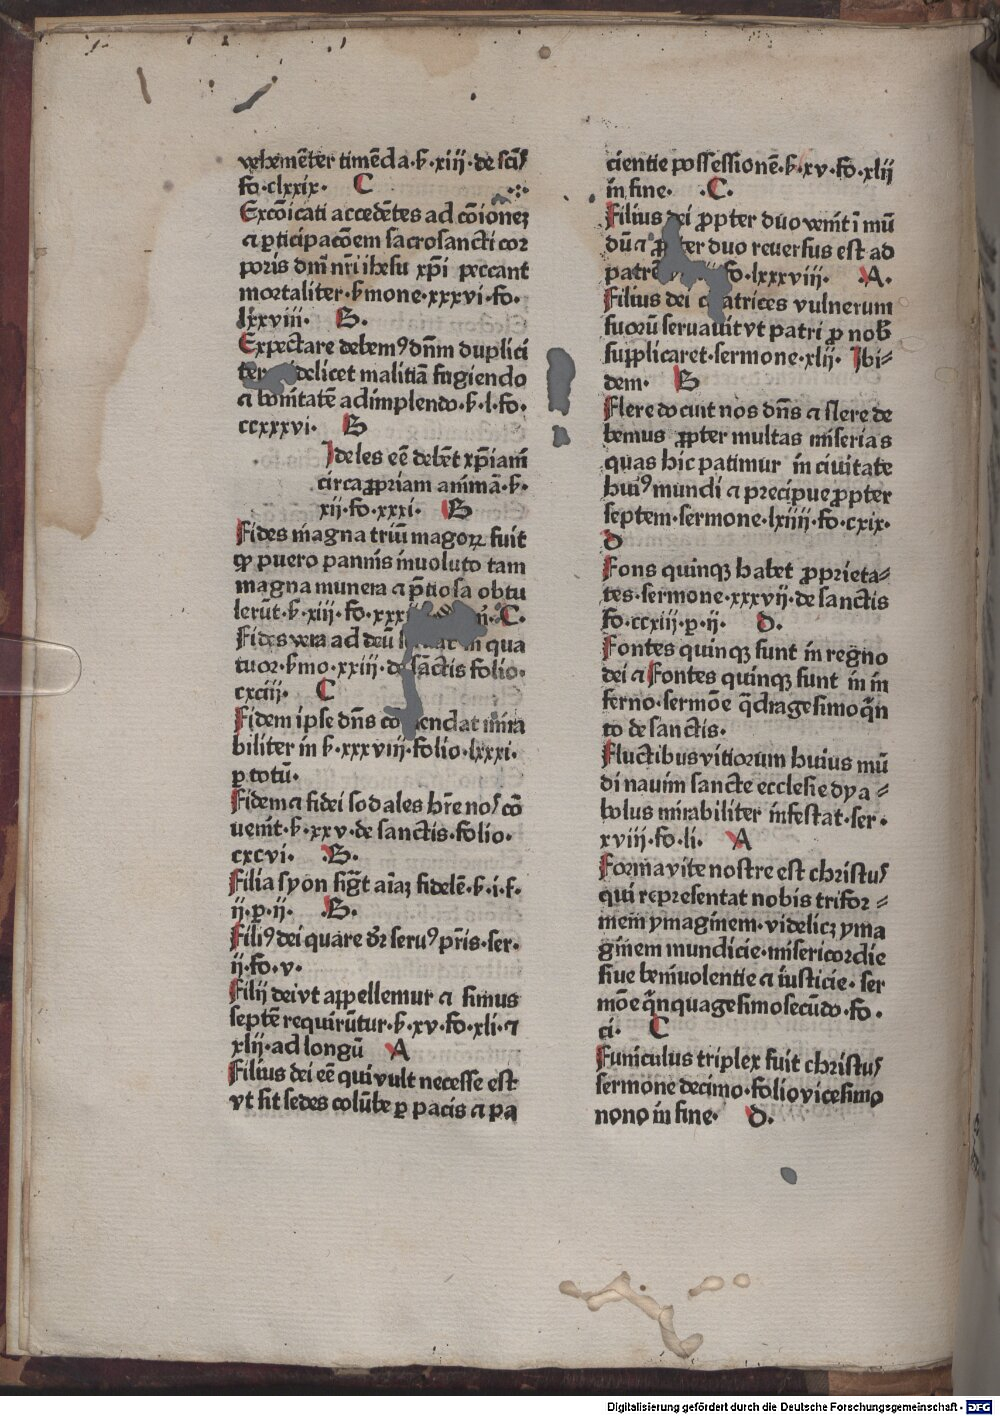 vehemēter timēda·ß·xiij·de scīs
fo·clxxix· C
Excōicati accedētes ad cōionez
⁊ ꝑticipacōem sacrosancti cor
poris dn̄i nr̄i ihesu xp̄i peccant
mortaliter·ßmone·xxxvi·fo·
lxxviii· B·
Expectare debemꝰ dn̄m duplici
delicet malitiā fugiendo
⁊ bonitatē adimplendo·ß·l·fo·
ccxxxvi· B
Ideles eē debēt xp̄iani
circa ꝓpriam animā·ß·
xij·fo·xxxi· B
Fides magna triū magoꝝ fuit
ꝙ puero pannis inuoluto tam
magna munera ⁊ p̄tiosa obtu
lerūt·ß·xiij·fo· C·
Fides vera ad deū in qua
tuor·ßmo·xxiij·de sanctis folio·
cxciij· C
Fidem ipse dn̄s mira
biliter in ß·xxxviij·folio·lxxxi·
ꝑ totū·
Fidem ⁊ fidei sodales hr̄e nos cō
uenit·ß·xxv·de sanctis·folio·
cxcvi· B·
Filia syon sigt̄ aīaz fidelē·ß·i·f·
ij·p·ij· B·
Filiꝰ dei quare dr̄ seruꝰ pr̄is·ser·
ij·fo·v·
Filij dei vt appellemur ⁊ simus
septē requirūtur·ß·xv·fo·xli·⁊
xlij·ad longū A
Filius dei eē qui vult necesse est
vt sit sedes colūbe ꝑ pacis ⁊ pa
cientie possessionē·ß·xv·fo·xlij
in fine· ·C·
Filius dei ꝓpter duo venit ī mū
dū ⁊ duo reuersus est ad
patrē fo·lxxxviij· A·
Filius dei vulnerum
suorū seruauit vt patri ꝓ nob̄
supplicaret·sermone·xlij· Ibi⸗
dem· B
Flere docuit nos dn̄s ⁊ flere de
bemus ꝓpter multas miserias
quas hic patimur in ciuitate
huiꝰ mundi ⁊ precipue ꝓpter
septem·sermone·lxiiij·fo·cxix·
D
Fons quinqꝫ habet ꝓprieta⸗
tes·sermone·xxxvij·de sanctis
fo·ccxiij·p·ij· D·
Fontes quinqꝫ sunt in regno
dei ⁊ Fontes quinqꝫ sunt in in
ferno·sermōe q̄dragesimo q̄n
to de sanctis·
Fluctibus vitiorum huius mū
di nauim sancte ecclesie dya⸗
bolus mirabiliter infestat·ser·
xviij·fo·li· A
Forma vite nostre est christus
qui representat nobis trifor⸗
mem ymaginem·videlicꝫ yma
ginem mundicie·misericordie
siue beniuolentie ⁊ iusticie·ser
mōe q̄nquagesimosecūdo·fo·
ci· C
Funiculus triplex fuit christus
sermone decimo·folio vicesimo
nono in fine· D·
Digitalisierung gefördert durch die Deutsche Forschungsgemeinschaft - DFG